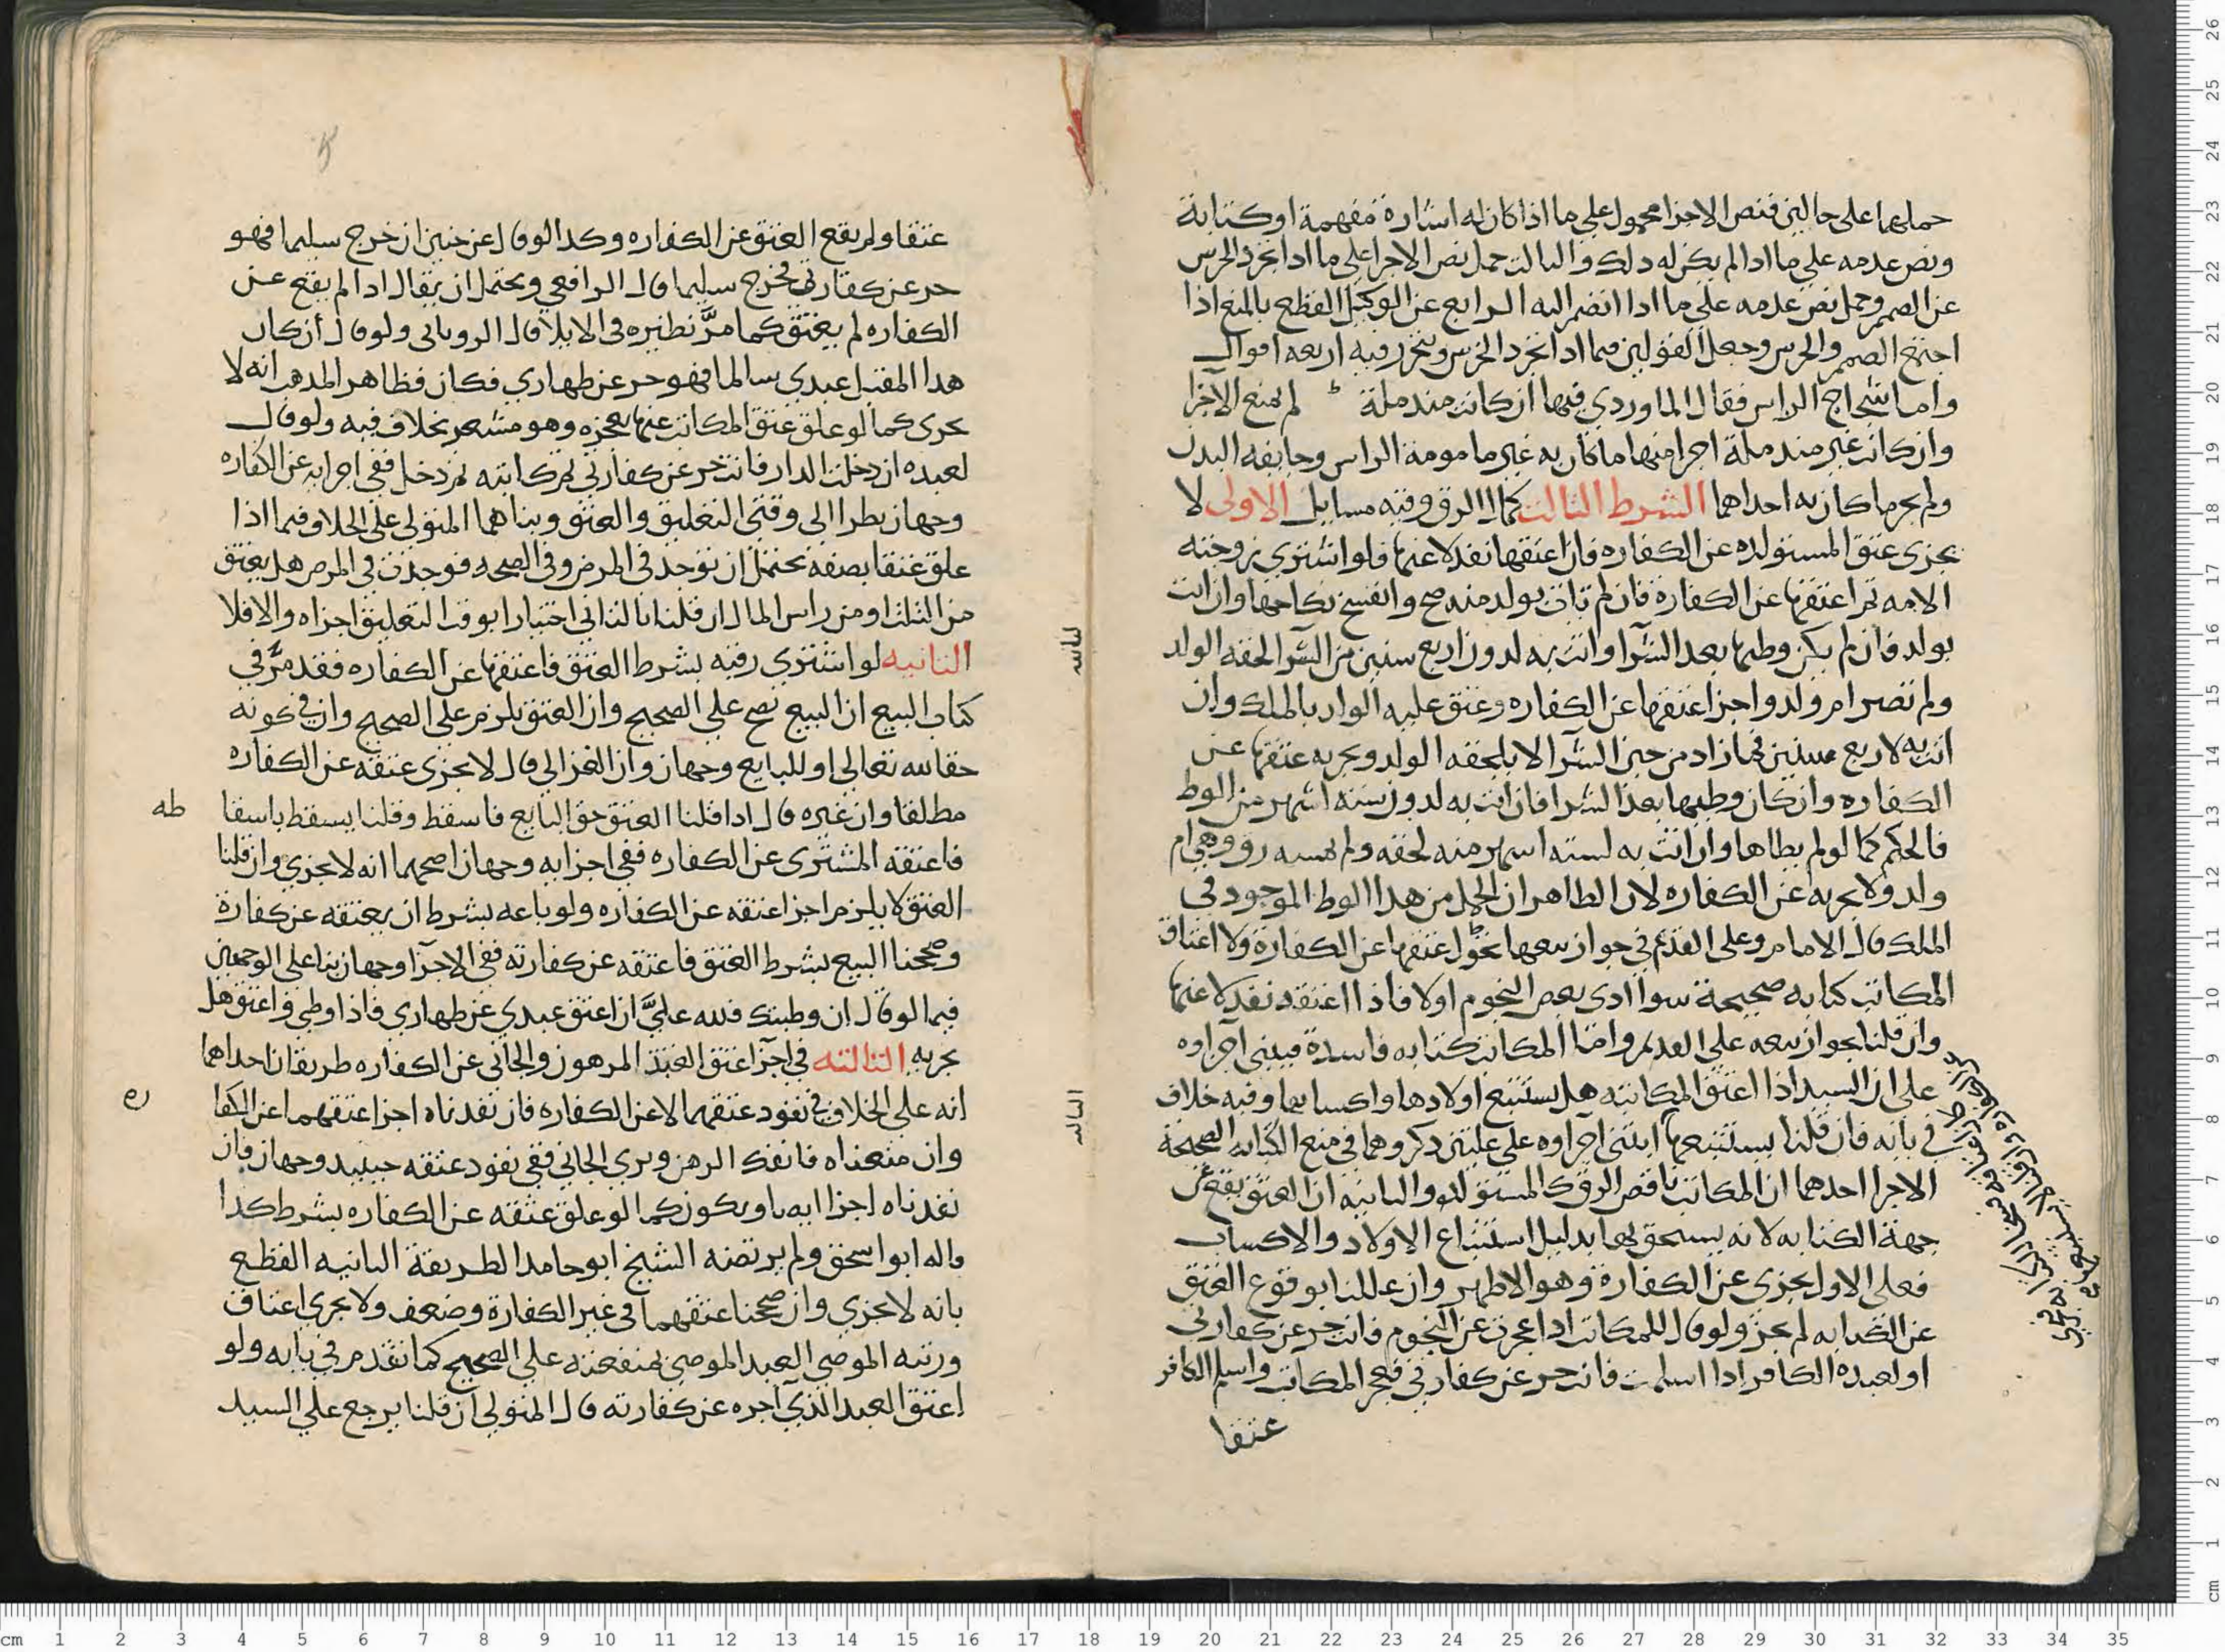 حملهما على حالين فنص الاجزا محمول على ما اذا كان له اشارة مفهمة او كتابة
ونص عدمه على ما ادا لم يكن له دلك والثالث حمل نص الاجرا على ما ادا تجرد الخرس
عن الصمم وحمل نص عدمه على ما ادا انضم اليه الرابع عن ابن الوكيل القطع بالمنع اذا
اجتمع الصمم والخرس وجعل القولين فيما ادا تجرد الخرس ويتحرر فيه اربعه اقوال
واما شجاج الراس فقال الماوردي فيها ان كانت مندملة لم تمنع الاجزا
وان كانت غير مندملة اجزا منها ما كان به غير مامومة الراس وجايفه البدن
ولم يجز ما كان به احداهما الشرط الثالث كمال الرق وفيه مسايل الاولى لا
يجزى عتق المستولده عن الكفاره فان اعتقها نفد لا عنها فلو اشتري زوجته
الامه ثم اعتقها عن الكفارة فان لم تات بولد منه صح وانفسخ نكاحها وان اتت
بولد فان لم يكن وطيها بعد الشرا واتت به لدون اربع سنين من الشرا لحقه الولد
ولم تصر ام ولد واجزا عتقها عن الكفاره وعتق عليه الولد بالملك وان
اتت به لاربع سنين فما زاد من حين الشرا لا يلحقه الولد ويجزيه عتقها عن
الكفاره وان كان وطيها بعد الشرا فان اتت به لدون سته اشهر من الوطء
فالحكم كما لو لم يطاها وان اتت به لسته اشهر منه لحقه ولم يمسه رق وهي ام
ولد ولا يجزيه عن الكفاره لان الظاهر ان الحمل من هدا الوطء الموجود في
الملك قال الامام وعلى القديم في جواز بيعها يجوز اعتقها عن الكفارة ولا اعتاق
المكاتب كتابه صحيحة سوا ادى بعض النجوم اولا فاذا اعتقه نفد لا عنها
وان قلنا بجواز بيعه على القديم واما المكاتب كتابه فاسدة فيبنى اجزاوه
على ان السيد اذا اعتق المكاتبه هل يستتبع اولادها واكسابها وفيه خلاف
في بابه فان قلنا يستتبعها ابتنى اجزاوه على علتين دكروهما في منع الكتابه الصحيحة
الاجزا احدهما ان المكاتب ناقص الرق كالمستولده والثانيه ان العتق يقع عن
جهة الكتابه لانه يستحق بها بدليل استتباع الاولاد والاكساب
فعلى الاول يجزى عن الكفارة وهو الاظهر وان عللنا بوقوع العتق
عن الكتابه لم يجز ولو قال للمكاتب ادا عجزت عن النجوم فانت حر عن كفارتي
او لعبده الكافر ادا اسلمت فانت حر عن كفارتي فعجز المكاتب واسلم الكافر
عتقا
عتقا ولم يقع العتق عن الكفاره وكدا لو قال عن جنين ان خرج سليما فهو
حر عن كفارتي فخرج سليما قال الرافعي ويحتمل ان يقال ادا لم يقع عن
الكفاره لم يعتق كما مر نظيره في الايلا قال الروياني ولو قال ان كان
هدا المقبل عبدي سالما فهو حر عن ظهاري فكان فظاهر المدهب انه لا
يجزى كما لو علق عتق المكاتب عنها بعجزه وهو مشعر بخلاف فيه ولو قال
لعبده ان دخلت الدار فانت حر عن كفارتي ثم كاتبه ثم دخل ففي اجزايه عن الكفاره
وجهان نظرا الى وقتي التعليق والعتق وبناهما المتولي على الخلاف فيما اذا
علق عتقا بصفه تحتمل ان توجد في المرض وفي الصحه فوجدت في المرض هل يعتق
من الثلث او من راس المال ان قلنا بالثاني اعتبارا بوقت التعليق اجزاه والا فلا
الثانيه لو اشتري رقبه بشرط العتق فاعتقها عن الكفاره فقد مر في
كتاب البيع ان البيع يصح على الصحيح وان العتق يلزم على الصحيح وان في كونه
حقا لله تعالى او للبايع وجهان وان الغزالي قال لا يجزى عتقه عن الكفاره
مطلقا وان غيره قال ادا قلنا العتق حق البايع فاسقط وقلنا يسقط باسقا طه
فاعتقه المشتري عن الكفاره ففي اجزايه وجهان اصحهما انه لا يجزي وان قلنا
العتق لا يلزم اجزا عتقه عن الكفاره ولو باعه بشرط ان يعتقه عن كفارة
وصححنا البيع بشرط العتق فاعتقه عن كفارته ففي الاجزا وجهان بناء على الوجهين
فيما لو قال ان وطيتك فلله علي ان اعتق عبدي عن ظهاري فاذا وطي واعتق هل
يجزيه الثالثه في اجزا عتق العبد المرهون والجاني عن الكفاره طريقان احداهما
انه على الخلاف في نفود عتقهما لا عن الكفاره فان نفدناه اجزا عتقهما عن الكفا ره
وان منعناه فانفك الرهن وبري الجاني ففي نفود عتقه حينيد وجهان فان
نفدناه اجزا ايضا ويكون كما لو علق عتقه عن الكفاره بشرط كدا
قاله ابو اسحق ولم يرتضه الشيخ ابو حامد الطريقة الثانيه القطع
بانه لا يجزي وان صححنا عتقهما في غير الكفارة وضعف ولا يجزي اعتاق
ورثه الموصي العبد الموصى بمنفعته على الصحيح كما تقدم في بابه ولو
اعتق العبد الذي اجره عن كفارته قال المتولي ان قلنا يرجع على السيد